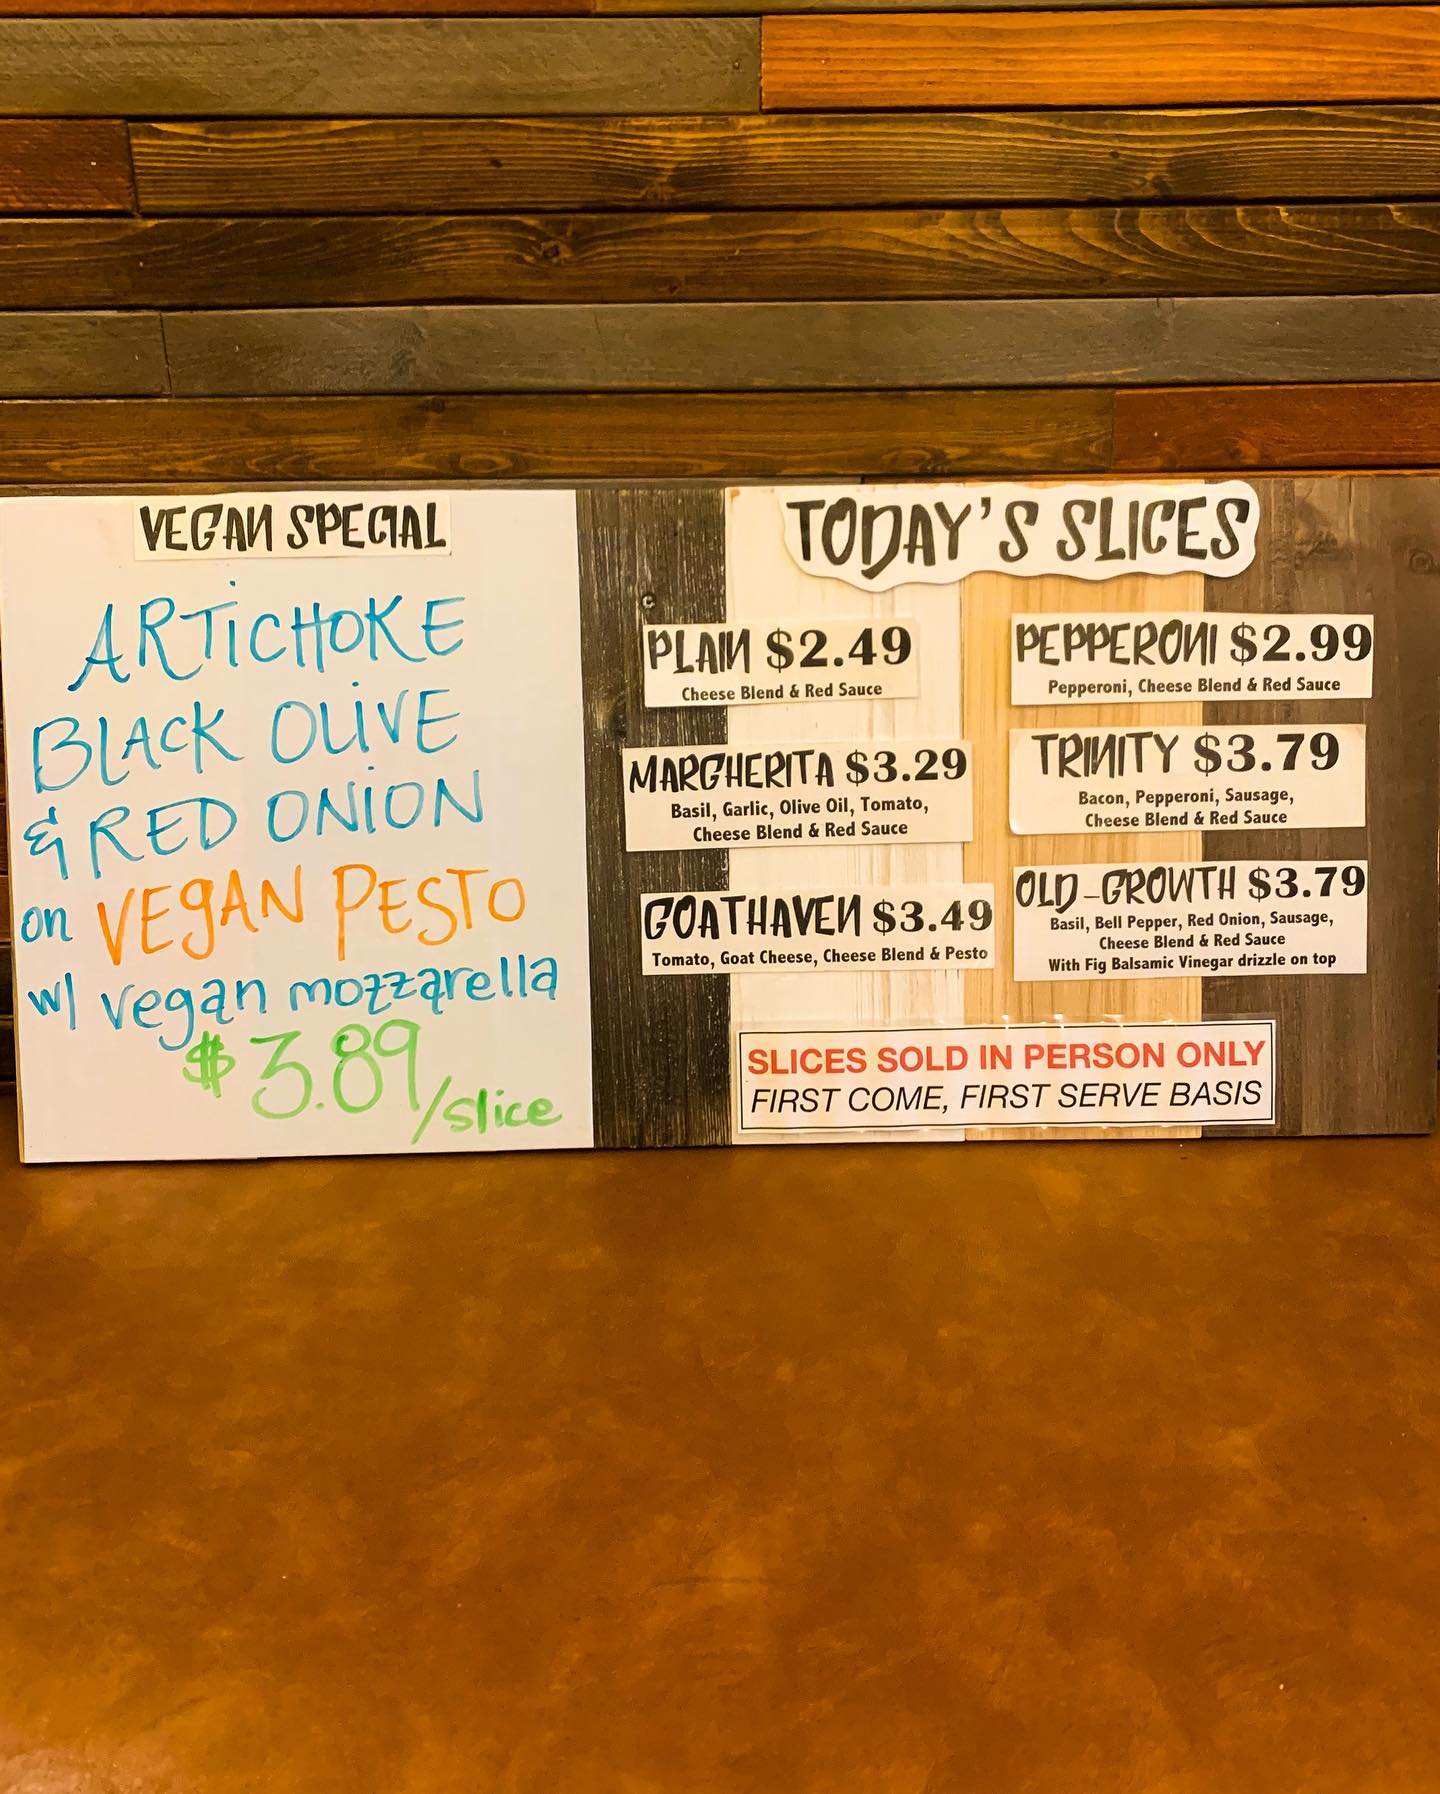 VEGAN SPECIAL
ARTICHOKE
BLACK OLIVE
& RED ONION
on VEGAN PESTO
w/ vegan mozzarella
$3.89/slice
TODAY'S SLICES
PLAIN $2.49
Cheese Blend & Red Sauce
MARGHERITA $3.29
Basil, Garlic, Olive Oil, Tomato,
Cheese Blend & Red Sauce
GOATHAVEN $3.49
Tomato, Goat Cheese, Cheese Blend & Pesto
PEPPERONI $2.99
Pepperoni, Cheese Blend & Red Sauce
TRINITY $3.79
Bacon, Pepperoni, Sausage,
Cheese Blend & Red Sauce
OLD-GROWTH $3.79
Basil, Bell Pepper, Red Onion, Sausage,
Cheese Blend & Red Sauce
With Fig Balsamic Vinegar drizzle on top
SLICES SOLD IN PERSON ONLY
FIRST COME, FIRST SERVE BASIS